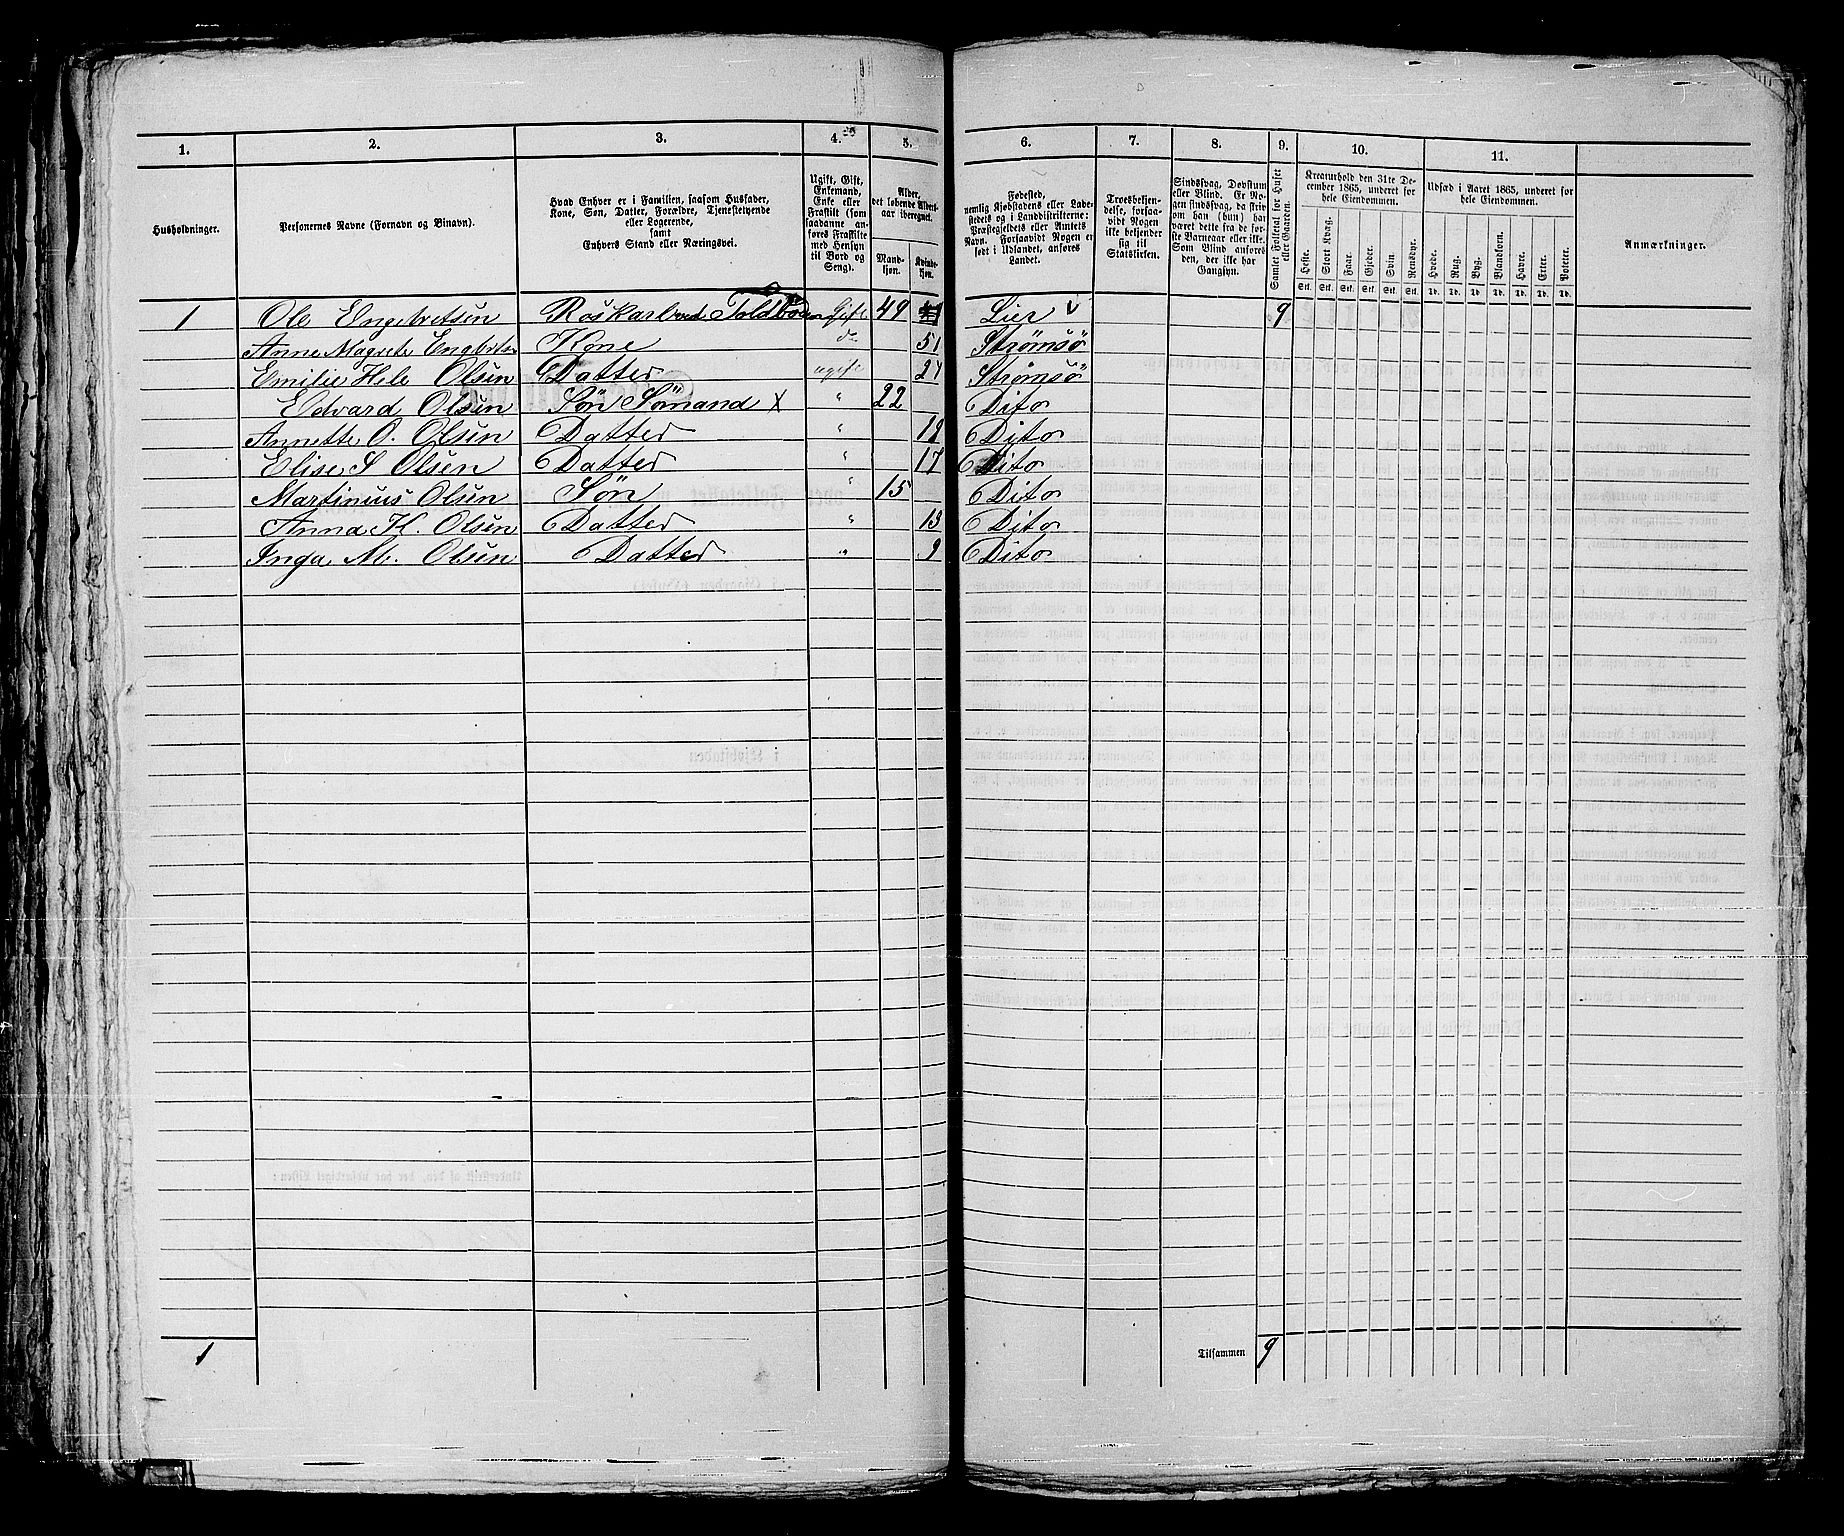 1. 2. 3. 4. 5. 6. 7. 8. 9. 10. 11.
Husholdninger.
Personernes Navne (Fornavn og Binavn).
Hvad Enhver er i Familien, saasom Husfader,
Kone, Søn, Datter, Forældre, Tjenestetyende
eller Logerende,
samt
Enhvers Stand eller Næringsvei.
Ugift, Gift,
Enkemand,
Enke eller
Fraskilt (som
saadanne an-
føres Fraskilte
med Hensyn
til Bord og
Seng).
Alder,
det løbende Alders-
aar iberegnet.
Mand-
kjøn.
Kvinde-
kjøn.
Fødested,
nemlig Kjøbstadens eller Lade-
stedets og i Landdistrikterne:
Præstegjeldets eller Amtets
Navn. Forsaavidt Nogen er
født i Udlandet, anføres
Landet.
Troesbekjen-
delse, forsaa-
vidt Nogen
ikke bekjender
sig til
Statskirken.
Sindssvag, Døvstum
eller Blind. Er No-
gen sindssvag, da skriv
om han (hun) har
været dette fra de før-
ste Barneaar eller ikke.
Som Blind anføres
den, der ikke har
Gangsyn.
Samlet Folketal for Huset
eller Gaarden.
Kreaturhold den 31te De-
cember 1865, underet for
hele Eiendommen.
Heste. Stort Kvæg. Faar. Gjeder. Svin. Rensdyr.
Stk. Stk. Stk. Stk. Stk. Stk.
Udsæd i Aaret 1865, underet for
hele Eiendommen.
Hvede. Rug. Byg. Blandkorn. Havre. Erter. Poteter.
Td. Td. Td. Td. Td. Td. Td.
Anmærkninger.
1 Ole Engebretsen Toldboden Gift 49 Lier v 9
Anne Magrete Kone do 51 Strømsö
Emilie Hele Olsen Datter ugift 27 Strømsö
Edvard Olsen Søn Sömand X " 22 Dito
Annette O. Olsen Datter " 19 Dito
Elise S Olsen Datter " 17 Dito
Martinius Olsen Søn " 15 Dito
Anna K. Olsen Datter " 13 Dito
Inga M. Olsen Datter " 9 Dito
1 Tilsammen 9